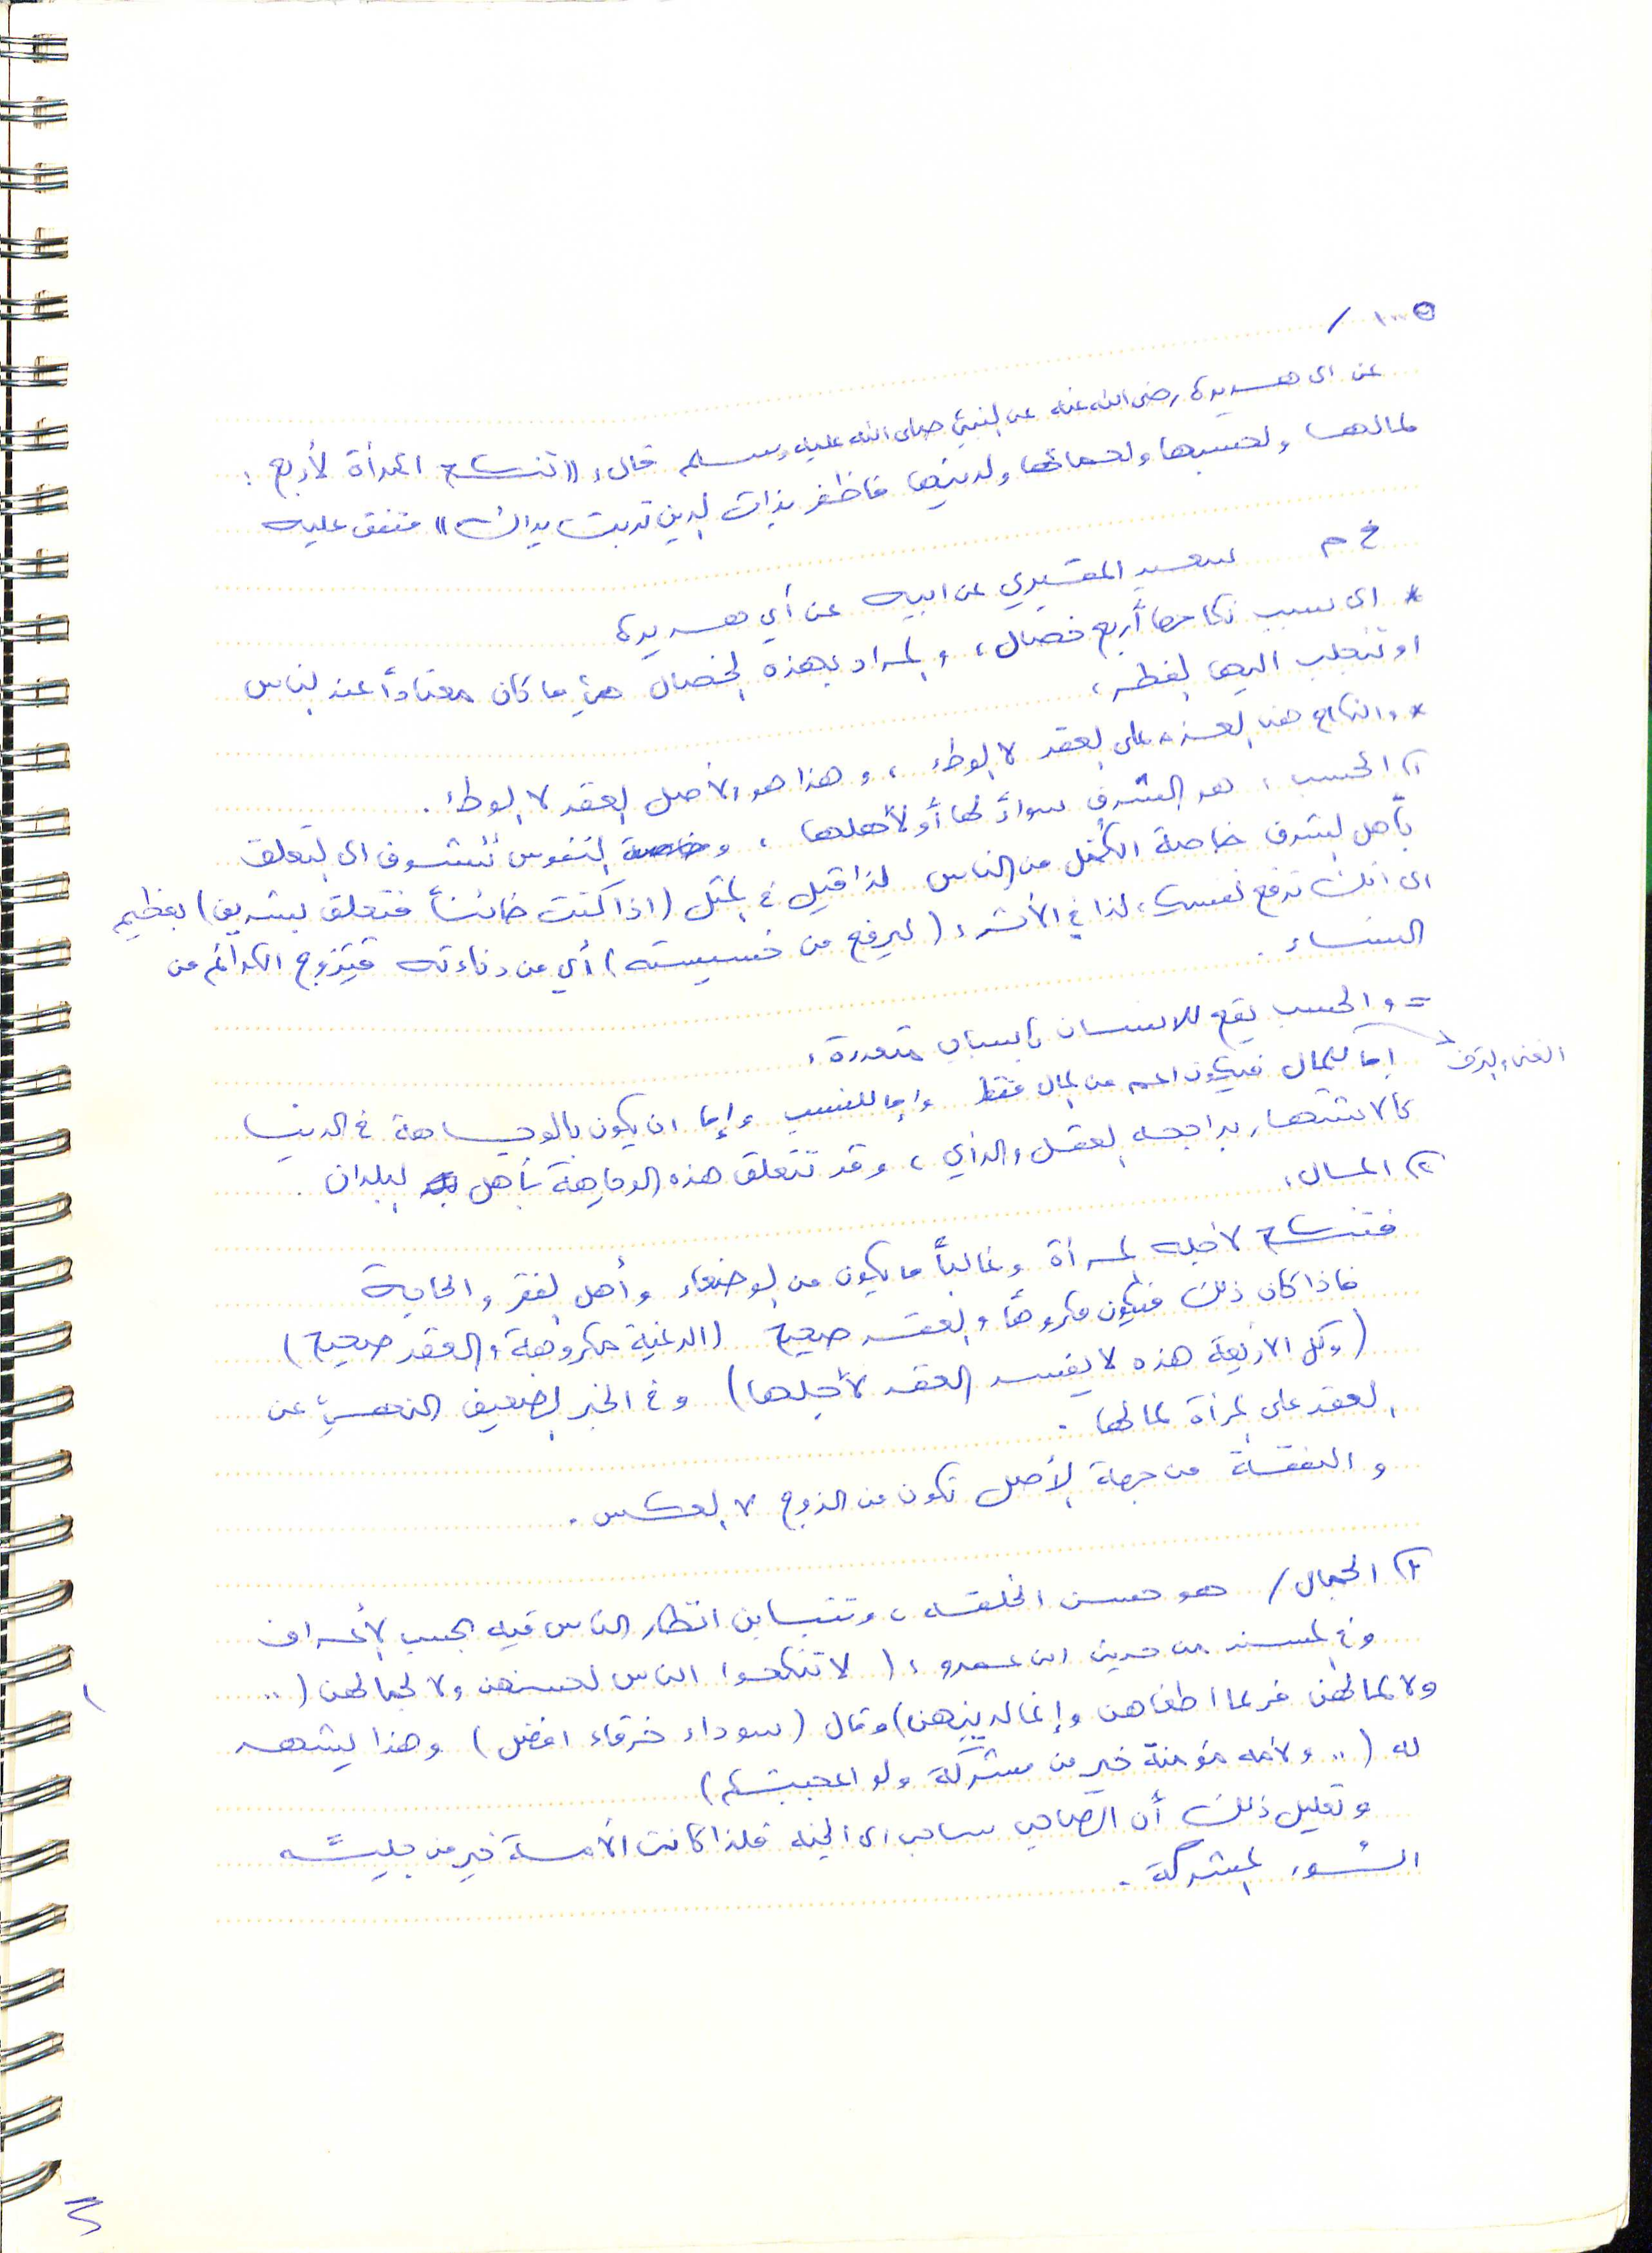 ١٠٠٥ /
عن ابى هريرة رضى الله عنه عن النبي صلى الله عليه وسلم قال: «تنكح المرأة لأربع :
لمالها ولحسبها ولجمالها ولدينها فاظفر بذات الدين تربت يداك» متفق عليه
خ م سعيد المقبري عن ابيه عن أبي هريرة
* اى سبب نكاحها أربع خصال، والمراد بهذه الخصال هي ما كان معتاداً عند الناس
او تنجلب اليها الفطر،
* والنكاح هنا على العقد لا الوطء، وهذا هو الأصل العقد لا الوطء.
١) الحسب: هو الشرف سواءً لها أو لأهلها، النفوس تتشوف الى التعلق
بأهل الشرف خاصة الكُمّل من الناس لذا قيل في المثل (اذا كنت فتعلق بشريف) بعظيم
اى انك ترفع نفسك، لذا في الأثر: (ليرفع من خسيسته) أي من دناءته فيتزوج الكرائم من
النساء.
= والحسب يقع للانسان بأسباب متعددة:
إما للمال فيكون اعم من المال فقط وإما للنسب وإما ان يكون بالوجاهة في الدنيا
الغنى والترف
كالاشتهار برجاحة العقل والرأي، وقد تتعلق هذه الوجاهة بأهل البلدان.
٢) المال:
فتنكح لأجله المرأة وغالباً ما يكون من الوضعاء وأهل الفقر والحاجة
فاذا كان ذلك فيكون مكروهاً والعقد صحيح (الرغبة مكروهة والعقد صحيح)
(وكل الاربعة هذه لا يفسد العقد لأجلها) وفي الخبر الضعيف النهي عن
العقد على المرأة لمالها.
والنفقة من جهة الأصل تكون من الزوج لا العكس.
٣) الجمال / هو حسن الخلقة، وتتباين انظار الناس فيه بحسب الأعراف
وفي المسند من حديث ابن عمرو: (لا تنكحوا النساء لحسنهن ولا لجمالهن (..
ولا لمالهن فربما اطغاهن وإنما لدينهن) وقال (سوداء خرقاء افضل) وهذا يشهد
له (.. ولأمة مؤمنة خير من مشركة ولو اعجبتكم)
وتعليل ذلك أن الصاحب ساحب الى الجنة فلذا كانت الأمة خير من جليسة
السوء المشركة.